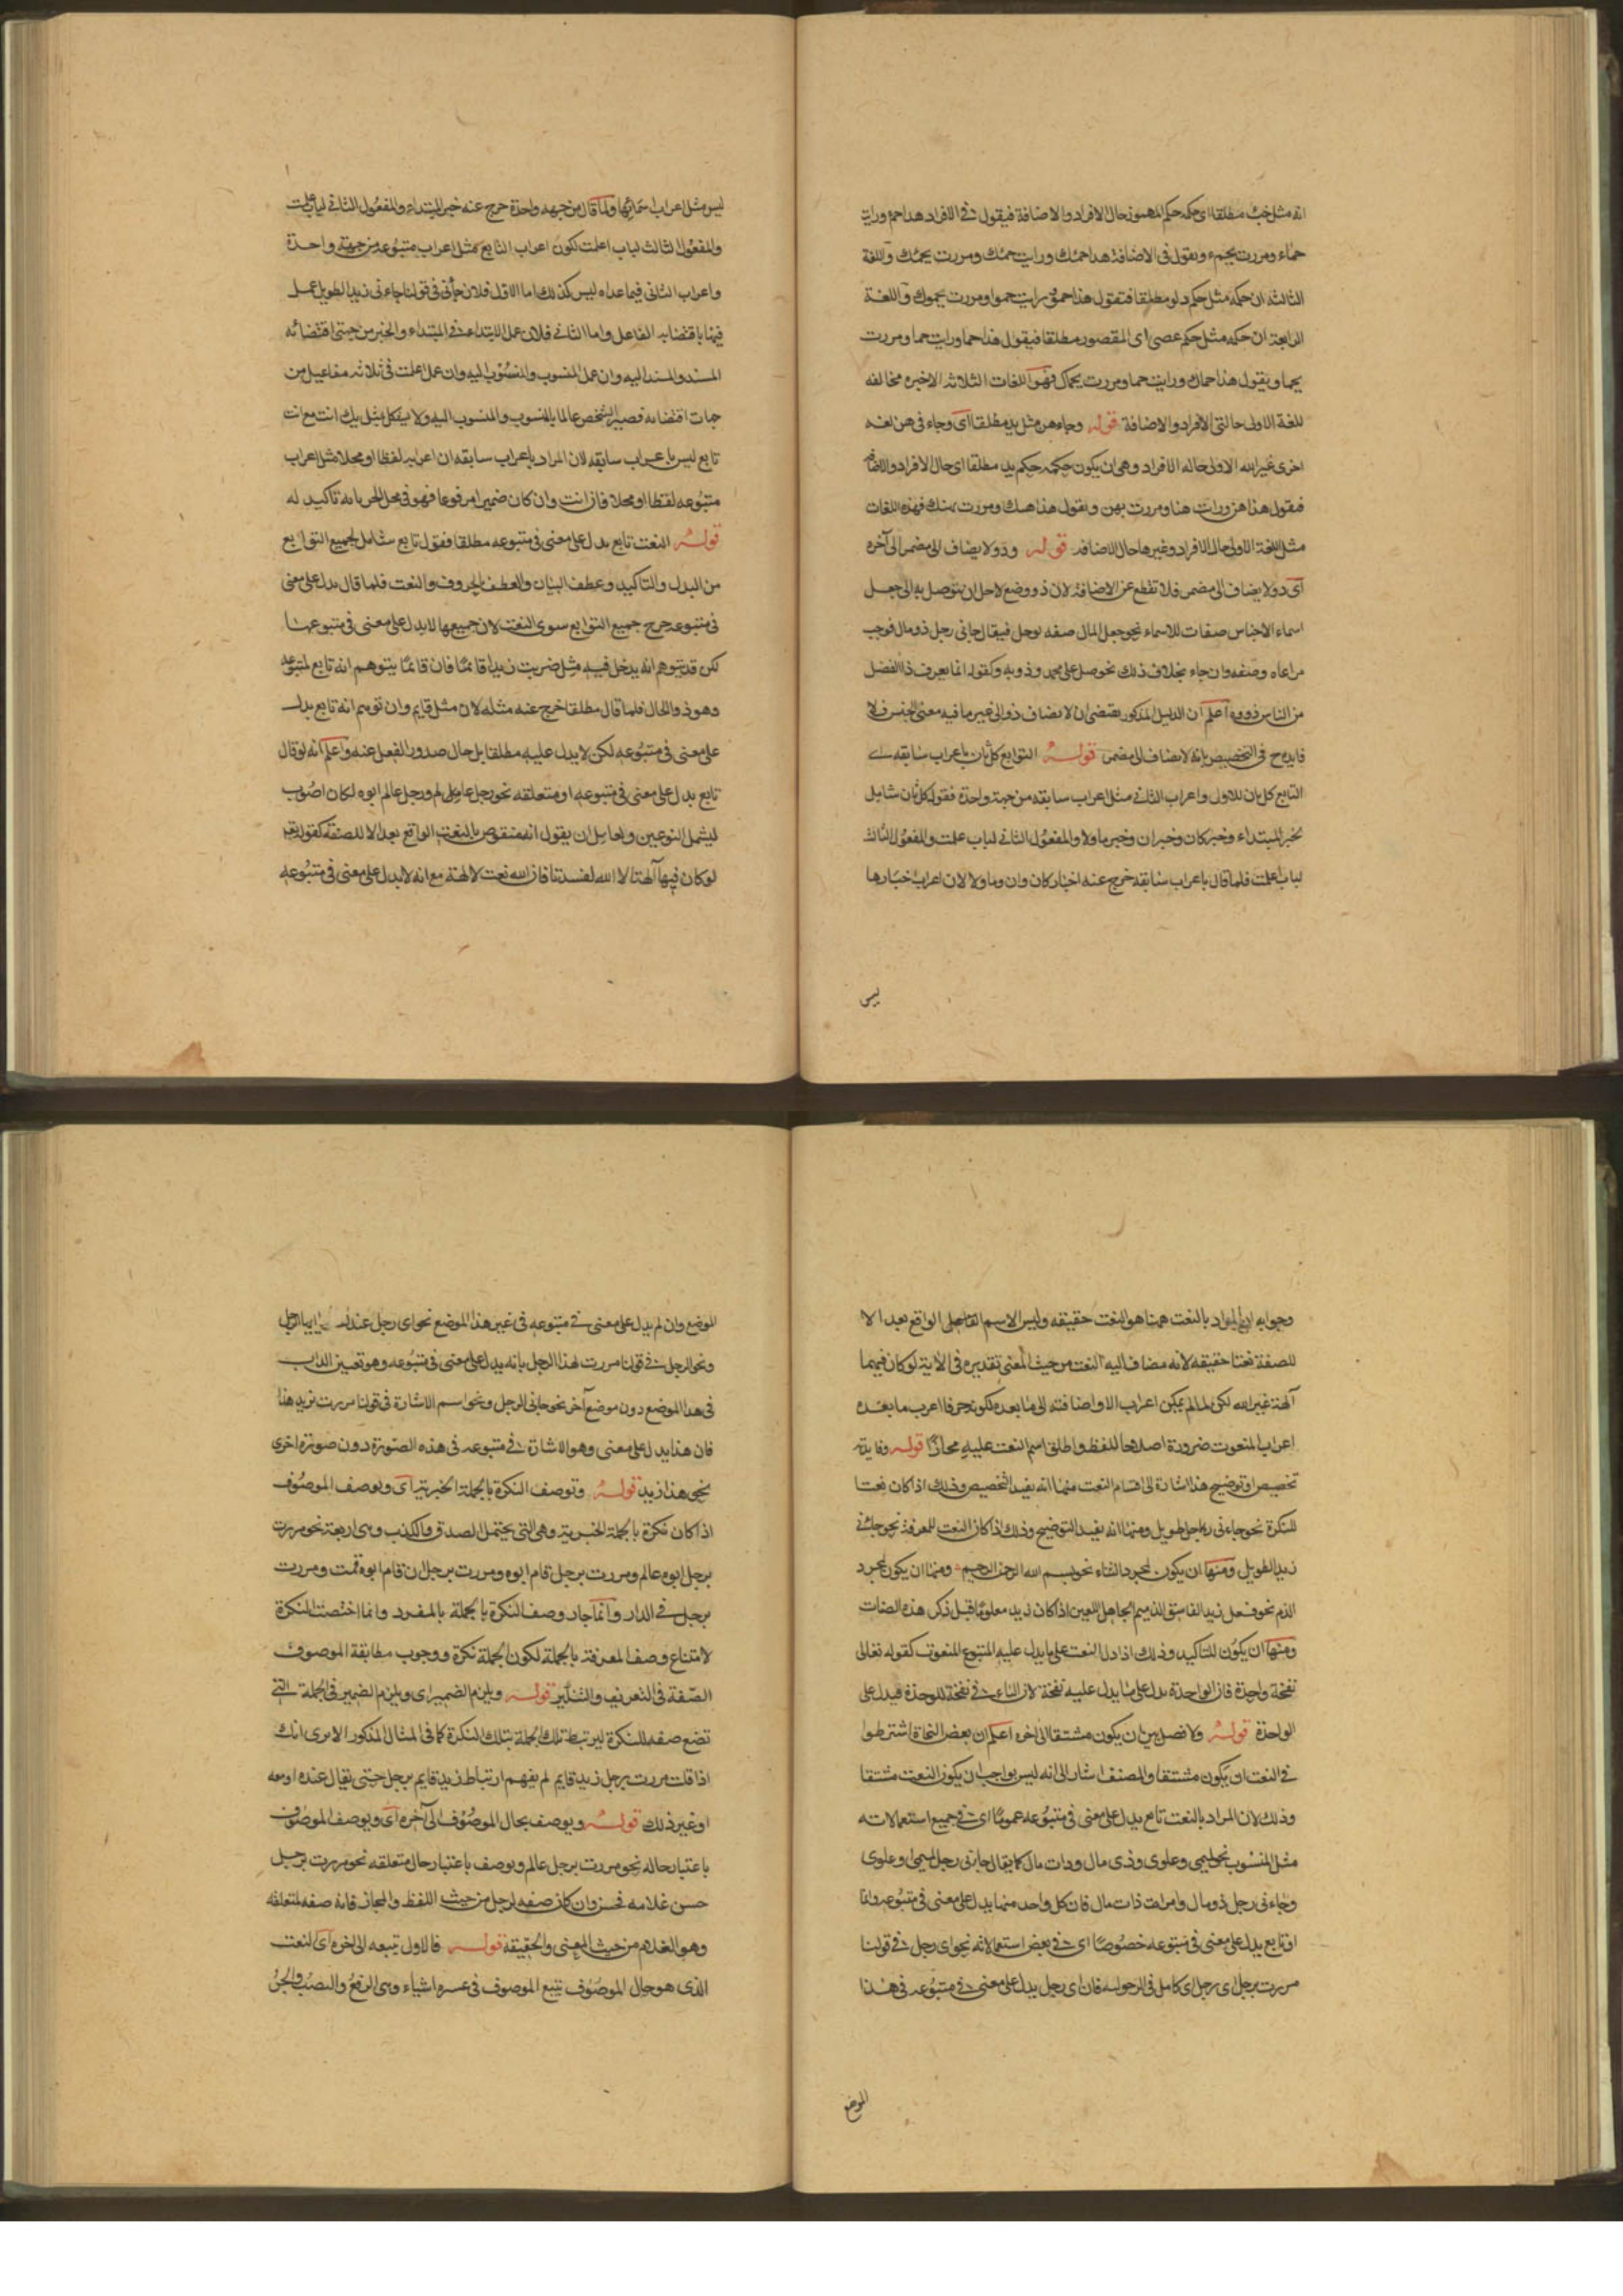 انه مثل خبء مطلقا اى حكمه حكم المهموز حال الافراد والاضافة فيقول فى الافراد هذا حمء ورايت
حماء ومررت بحمء ويقول فى الاضافة هذا حمئك ورايت حمئك ومررت بحمئك واللغة
الثالثة ان حكمه مثل حكم دلو مطلقا فتقول هذا حمو ورايت حموا ومررت بحموك واللغة
الرابعة ان حكمه مثل حكم عصى اى المقصور مطلقا فيقول هذا حما ورايت حما ومررت
بحما ويقول هذا حماك ورايت حما ومررت بحماك فهو اللغات الثلاثه الاخيره مخالفه
للغة الاولى حالتى الافراد والاضافة قوله وجاء هن مثل يد مطلقا اى وجاء فى هن لغه
اخرى غير الاولى حاله الافراد وهى ان يكون حكمه حكم يد مطلقا اى حال الافراد والاضافه
فيقول هذا هن ورايت هنا ومررت بهن ويقول هذا هنك ومررت بهنك فهذه اللغات
مثل اللغة الاولى حال الافراد وغيرها حال الاضافه قوله وذو لا يضاف الى مضمر الى آخره
اى ذو لا يضاف الى مضمر فلا تقطع عن الاضافة لان ذو وضع لاجل ان يتوصل به الى جعل
اسماء الاجناس صفات للاسماء نحو جعل المال صفه لرجل فيقال جانى رجل ذو مال فوجب
مراعاه وضفه وان جاء بخلاف ذلك نحو صل على محمد وذويه وكقوله انما يعرف ذا الفضل
من الناس ذووه اعلم ان الدليل المذكور يقتضى ان لا يضاف ذو الى غير ما فيه معنى الجنس فلا
فايده ح فى التخصيص بانه لا يضاف الى مضمر قوله التوابع كل ثان باعراب سابقه اى
التابع كل ثان للاول واعراب الثانى مثل اعراب سابقه من جهة واحدة فقوله كل ثان شامل
لخبر المبتداء وخبر كان وخبر ان وخبر ما ولا والمفعول الثانى لباب علمت والمفعول الثالث
لباب اعلمت فلما قال باعراب سابقه خرج عنه اخبار كان وان وما ولا لان اعراب اخبارها
ليس
ليس مثل اعراب اسمائها ولما قال من جهه واحدة خرج عنه خبر المبتداء والمفعول الثانى لباب علمت
والمفعول الثالث لباب اعلمت لكون اعراب التابع كمثل اعراب متبوعه من جهته واحدة
واعراب الثانى فيما عداه ليس كذلك اما الاول فلان جأنى فى قولنا جاءنى زيد الطويل عمل
فيهما باقتضايه الفاعل واما الثانى فلان عمل الابتداء فى المبتداء والخبر من جهتى اقتضائه
المسند والمسند اليه وان عمل المنسوب والمنسوب اليه وان عمل اعلمت فى ثلاثه مفاعيل من
جهات اقتضائه فصير الشخص عالما بالمنسوب والمنسوب اليه ولا يشكل بمثل بك انت مع انت
تابع ليس باعراب سابقه لان المراد باعراب سابقه ان اعرابه لفظا او محلا مثل اعراب
متبوعه لفظا او محلا فان انت وان كان ضميرا مرفوعا فهو فى محل الجر بانه تاكيد له
قوله النعت تابع يدل على معنى فى متبوعه مطلقا فقوله تابع شامل لجميع التوابع
من البدل والتاكيد وعطف البيان والعطف بالحروف والنعت فلما قال يدل على معنى
فى متبوعه خرج جميع التوابع سوى النعت لان جميعها لا يدل على معنى فى متبوعها
لكن قد يتوهم انه يدخل فيه مثل ضربت زيدا قائما فان قائما يتوهم انه تابع لمتبوعه
وهو ذو الحال فلما قال مطلقا خرج عنه مثله لان مثل قايم وان توهم انه تابع يدل
على معنى فى متبوعه لكن لا يدل عليه مطلقا بل حال صدور الفعل عنه واعلم انه لو قال
تابع يدل على معنى فى متبوعه او متعلقه نحو رجل عامل لم ورجل عالم ابوه لكان اصوب
ليشمل النوعين ولعامل ان يقول انه منقوض بالنعت الواقع بعد الا للصفة كقوله تعه
لو كان فيهما آلهة الا الله لفسدتا فان الله نعت لآلهة مع انه لا يدل على معنى فى متبوعه
وجوابه ان المواد بالنعت ههنا هو النعت حقيقه وليس الاسم الواقع بعد الا
للصفة نعتا حقيقه لانه مضاف اليه النعت من حيث المعنى تقديره فى الآية لو كان فيهما
آلهة غير الله لكن لما لم يمكن اعراب الا واضافته الى ما بعده لكونه حرفا اعرب ما بعده
اعراب المنعوت ضرورة اصلاحا للفظ واطلق اسم النعت عليه مجازًا قوله وفايدته
تخصيص او توضيح هذا اشارة الى اقسام النعت منها انه يفيد التخصيص وذلك اذا كان نعتا
للنكرة نحو جاءنى رجل طويل ومنها انه يفيد التوضيح وذلك اذا كان النعت للمعرفة نحو جائنى
زيد الطويل ومنها ان يكون لمجرد الثناء نحو بسم الله الرحمن الرحيم ومنها ان يكون لمجرد
الذم نحو فعل زيد الفاسق الذميم الجاهل اللعين اذا كان زيد معلوما قبل ذكر هذه الصفات
ومنها ان يكون للتاكيد وذلك اذا دل النعت على ما يدل عليه المتبوع المنعوت كقوله تعالى
نفخة واحدة فان الواحدة يدل على ما يدل عليه نفخة لان التاء فى نفخة للوحدة فيدل على
الواحدة قوله ولا فصل بين ان يكون مشتقا الى آخره اعلم ان بعض النحاة اشترطوا
فى النعت ان يكون مشتقا والمصنف اشار الى انه ليس بواجب ان يكون النعت مشتقا
وذلك لان المراد بالنعت تابع يدل على معنى فى متبوعه عموما اى فى جميع استعمالاته
مثل المنسوب نحو تميمى وعلوى وذى مال وذات مال كما يقال جاءنى رجل تميمى او علوى
وجاءنى رجل ذو مال وامراة ذات مال فان كل واحد منها يدل على معنى فى متبوعه دائما
او تابع يدل على معنى فى متبوعه خصوصًا اى فى بعض استعمالاته نحو اى رجل فى قولنا
مررت برجل اى رجل اى كامل فى الرجولية فان اى رجل يدل على معنى فى متبوعه فى هذا
الموضع
الموضع وان لم يدل على معنى فى متبوعه فى غير هذا الموضع نحو اى رجل عندك و يا ايها الرجل
ونحو الرجل فى قولنا مررت بهذا الرجل بانه يدل على معنى فى متبوعه وهو تعيين الذات
فى هذا الموضع دون موضع آخر نحو جانى الرجل ونحو اسم الاشارة فى قولنا مررت بزيد هذا
فان هذا يدل على معنى وهو الاشارة فى متبوعه فى هذه الصورة دون صورة اخرى
نحو هذا زيد قوله وتوصف النكرة بالجملة الخبرية اى ويوصف الموصوف
اذا كان نكرة بالجملة الخبرية وهى التى يحتمل الصدق والكذب وهى اربعة نحو مررت
برجل ابوه عالم ومررت برجل قام ابوه ومررت برجل ان قام ابوه قمت ومررت
برجل فى الدار وانما جاز وصف النكرة بالجملة بالمفرد وانما اختصت النكرة
لامتناع وصف المعرفة بالجملة لكون الجملة نكرة ووجوب مطابقة الموصوف
الصفة فى التعريف والتنكير قوله ويلزم الضمير اى ويلزم الضمير فى الجملة التى
تضع صفه للنكرة ليرتبط تلك الجملة بتلك النكرة كما فى المثال المذكور الا ترى انك
اذا قلت مررت برجل زيد قايم لم يفهم ارتباط زيد قايم برجل حتى يقال عنده او معه
او غير ذلك قوله ويوصف بحال الموصوف الى آخره اى ويوصف الموصوف
باعتبار حاله نحو مررت برجل عالم ويوصف باعتبار حال متعلقه نحو مررت برجل
حسن غلامه فحسن وان كان صفه لرجل من حيث اللفظ والمجاز فانه صفه لمتعلقه
وهو الغلام من حيث المعنى والحقيقة قوله فالاول يتبعه الى آخره اى النعت
الذى هو حال الموصوف يتبع الموصوف فى عشره اشياء وهى الرفع والنصب والجر